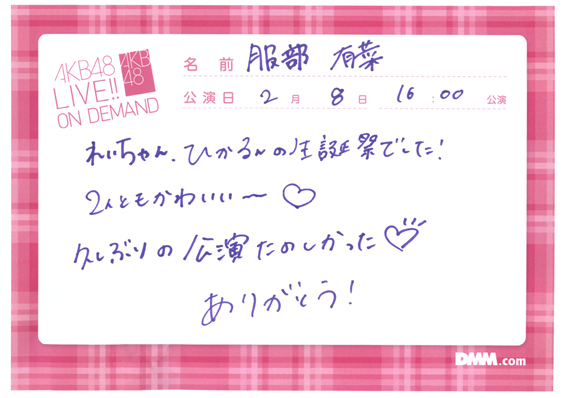 AKB48
LIVE!!
ON DEMAND
AKB
48
名前 服部 有菜
公演日 2月 8日 16:00 公演
れいちゃん、ひかるんの生誕祭でした!
2人ともかわいい〜♡
久しぶりの公演たのしかった♡
ありがとう!
DMM.com